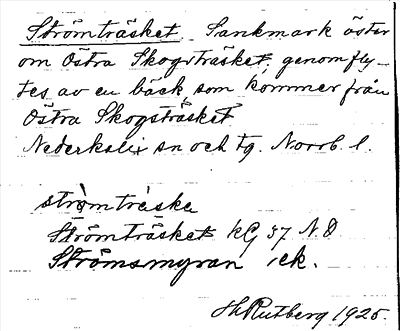 Strömträsket. Sankmark öster
om Östra Skogsträsket, genomfly-
tes av en bäck som kommer från
Östra Skogsträsket
Nederkalix sn och tg. Norrb. l.
strömträske
Strömträsket kG 37 N.D
Strömsmyran ek.
Th Rutberg 1925.